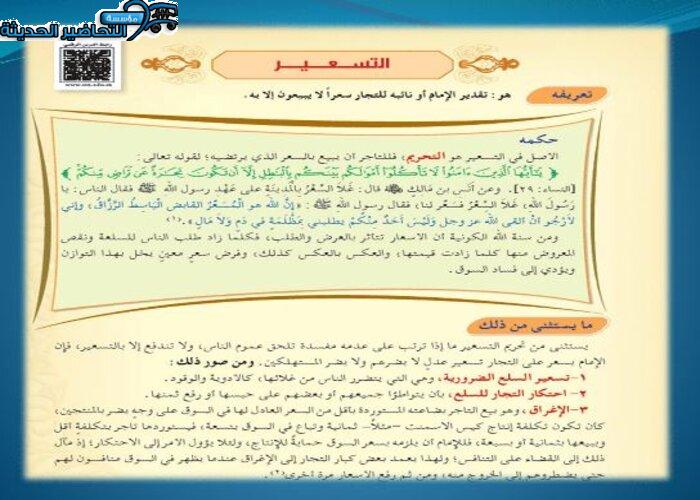 مؤسسة
التحاضير الحديثة
رابط الدرس الرقمي
www.ien.edu.sa
التسعير
تعريفه
هو: تقدير الإمام أو نائبه للتجار سعراً لا يبيعون إلا به.
حكمه
الأصل في التسعير هو التحريم، فللتاجر أن يبيع بالسعر الذي يرتضيه؛ لقوله تعالى:
﴿ يَتَأَيُّهَا الَّذِينَ ءَامَنُوا لَا تَأْكُلُوا أَمْوَالَكُم بَيْنَكُم بِالْبَاطِلِ إِلَّا أَن تَكُونَ تِجَرَةً عَن تَرَاضٍ مِّنكُمْ ﴾
[النساء: ٢٩]. وعن أنَس بن مَالِكٍ ﷺ قال: غَلَا السِّعْرُ بِالْمَدِينَةِ على عَهْدِ رسول اللَّه ﷺ فقال الناس: يا
رَسُولَ اللَّه، غَلَا السِّعْرُ فَسَعِّر لنا، فقال رسول اللَّه ﷺ: «إِنَّ اللَّه هو الْمُسَعِّرُ القابض الْبَاسِطُ الرَّزَّاقُ، وإني
لأَرْجُو أَنْ القى اللَّه عز وجل وَلَيْسَ أَحَدٌ مِنْكُمْ يطلبني بِمَظْلَمَةٍ في دَمٍ وَلاَ مَالٍ».(١)
ومن سنة الله الكونية أن الأسعار تتأثر بالعرض والطلب، فكلما زاد طلب الناس للسلعة ونقص
المعروض منها كلما زادت قيمتها، والعكس بالعكس كذلك، وفرض سعرٍ معينٍ يخل بهذا التوازن
ويؤدي إلى فساد السوق.
ما يستثنى من ذلك
يستثنى من تحريم التسعير ما إذا ترتب على عدمه مفسدة تلحق عموم الناس، ولا تندفع إلا بالتسعير، فإن
الإمام يسعر على التجار تسعير عدلٍ لا يضرهم ولا يضر المستهلكين. ومن صور ذلك:
١-تسعير السلع الضرورية، وهي التي يتضرر الناس من غلائها، كالأدوية والوقود.
٢- احتكار التجار للسلع، بأن يتواطؤا جميعهم أو بعضهم على حبسها أو رفع ثمنها.
٣-الإغراق، وهو بيع التاجر بضاعته المستوردة بأقل من السعر العادل لها في السوق على وجهٍ يضر بالمنتجين،
كأن تكون تكلفة إنتاج كيس الأسمنت -مثلاً- ثمانية وتباع في السوق بتسعة، فيستوردها تاجر بتكلفةٍ أقل
ويبيعها بثمانية أو بسبعة، فللإمام أن يلزمه بسعر السوق حمايةً للإنتاج، ولئلا يؤول الأمر إلى الاحتكار؛ إذ مآل
ذلك إلى القضاء على التنافس؛ ولهذا يعمد بعض كبار التجار إلى الإغراق عندما يظهر في السوق منافسون لهم
حتى يضطروهم إلى الخروج منه، ومن ثم رفع الأسعار مرة أخرى(٢).